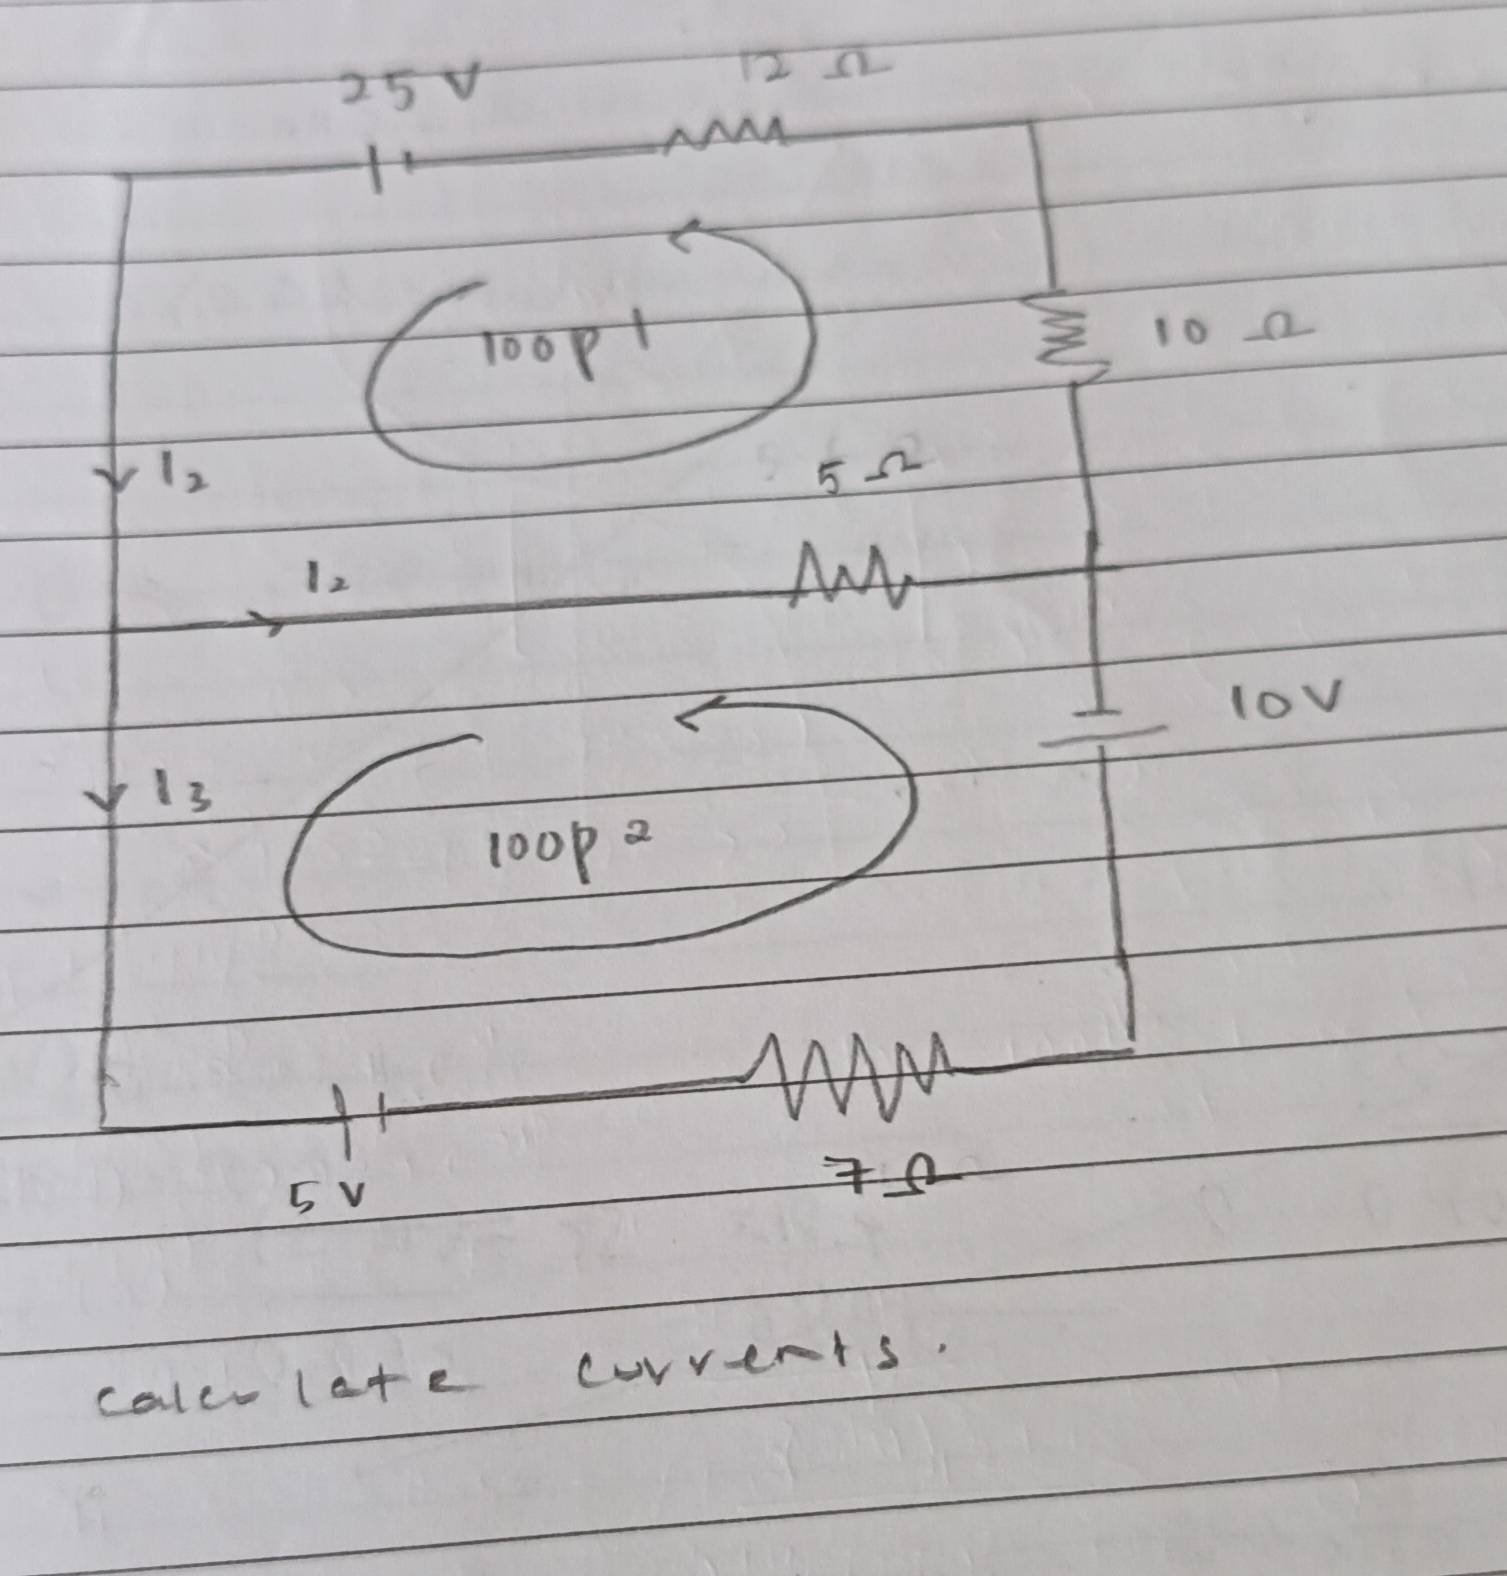 25 V
12 Ω
loop 1
10 Ω
I₂
5 Ω
I₂
10V
I₃
loop 2
5 V
7 Ω
calculate currents.